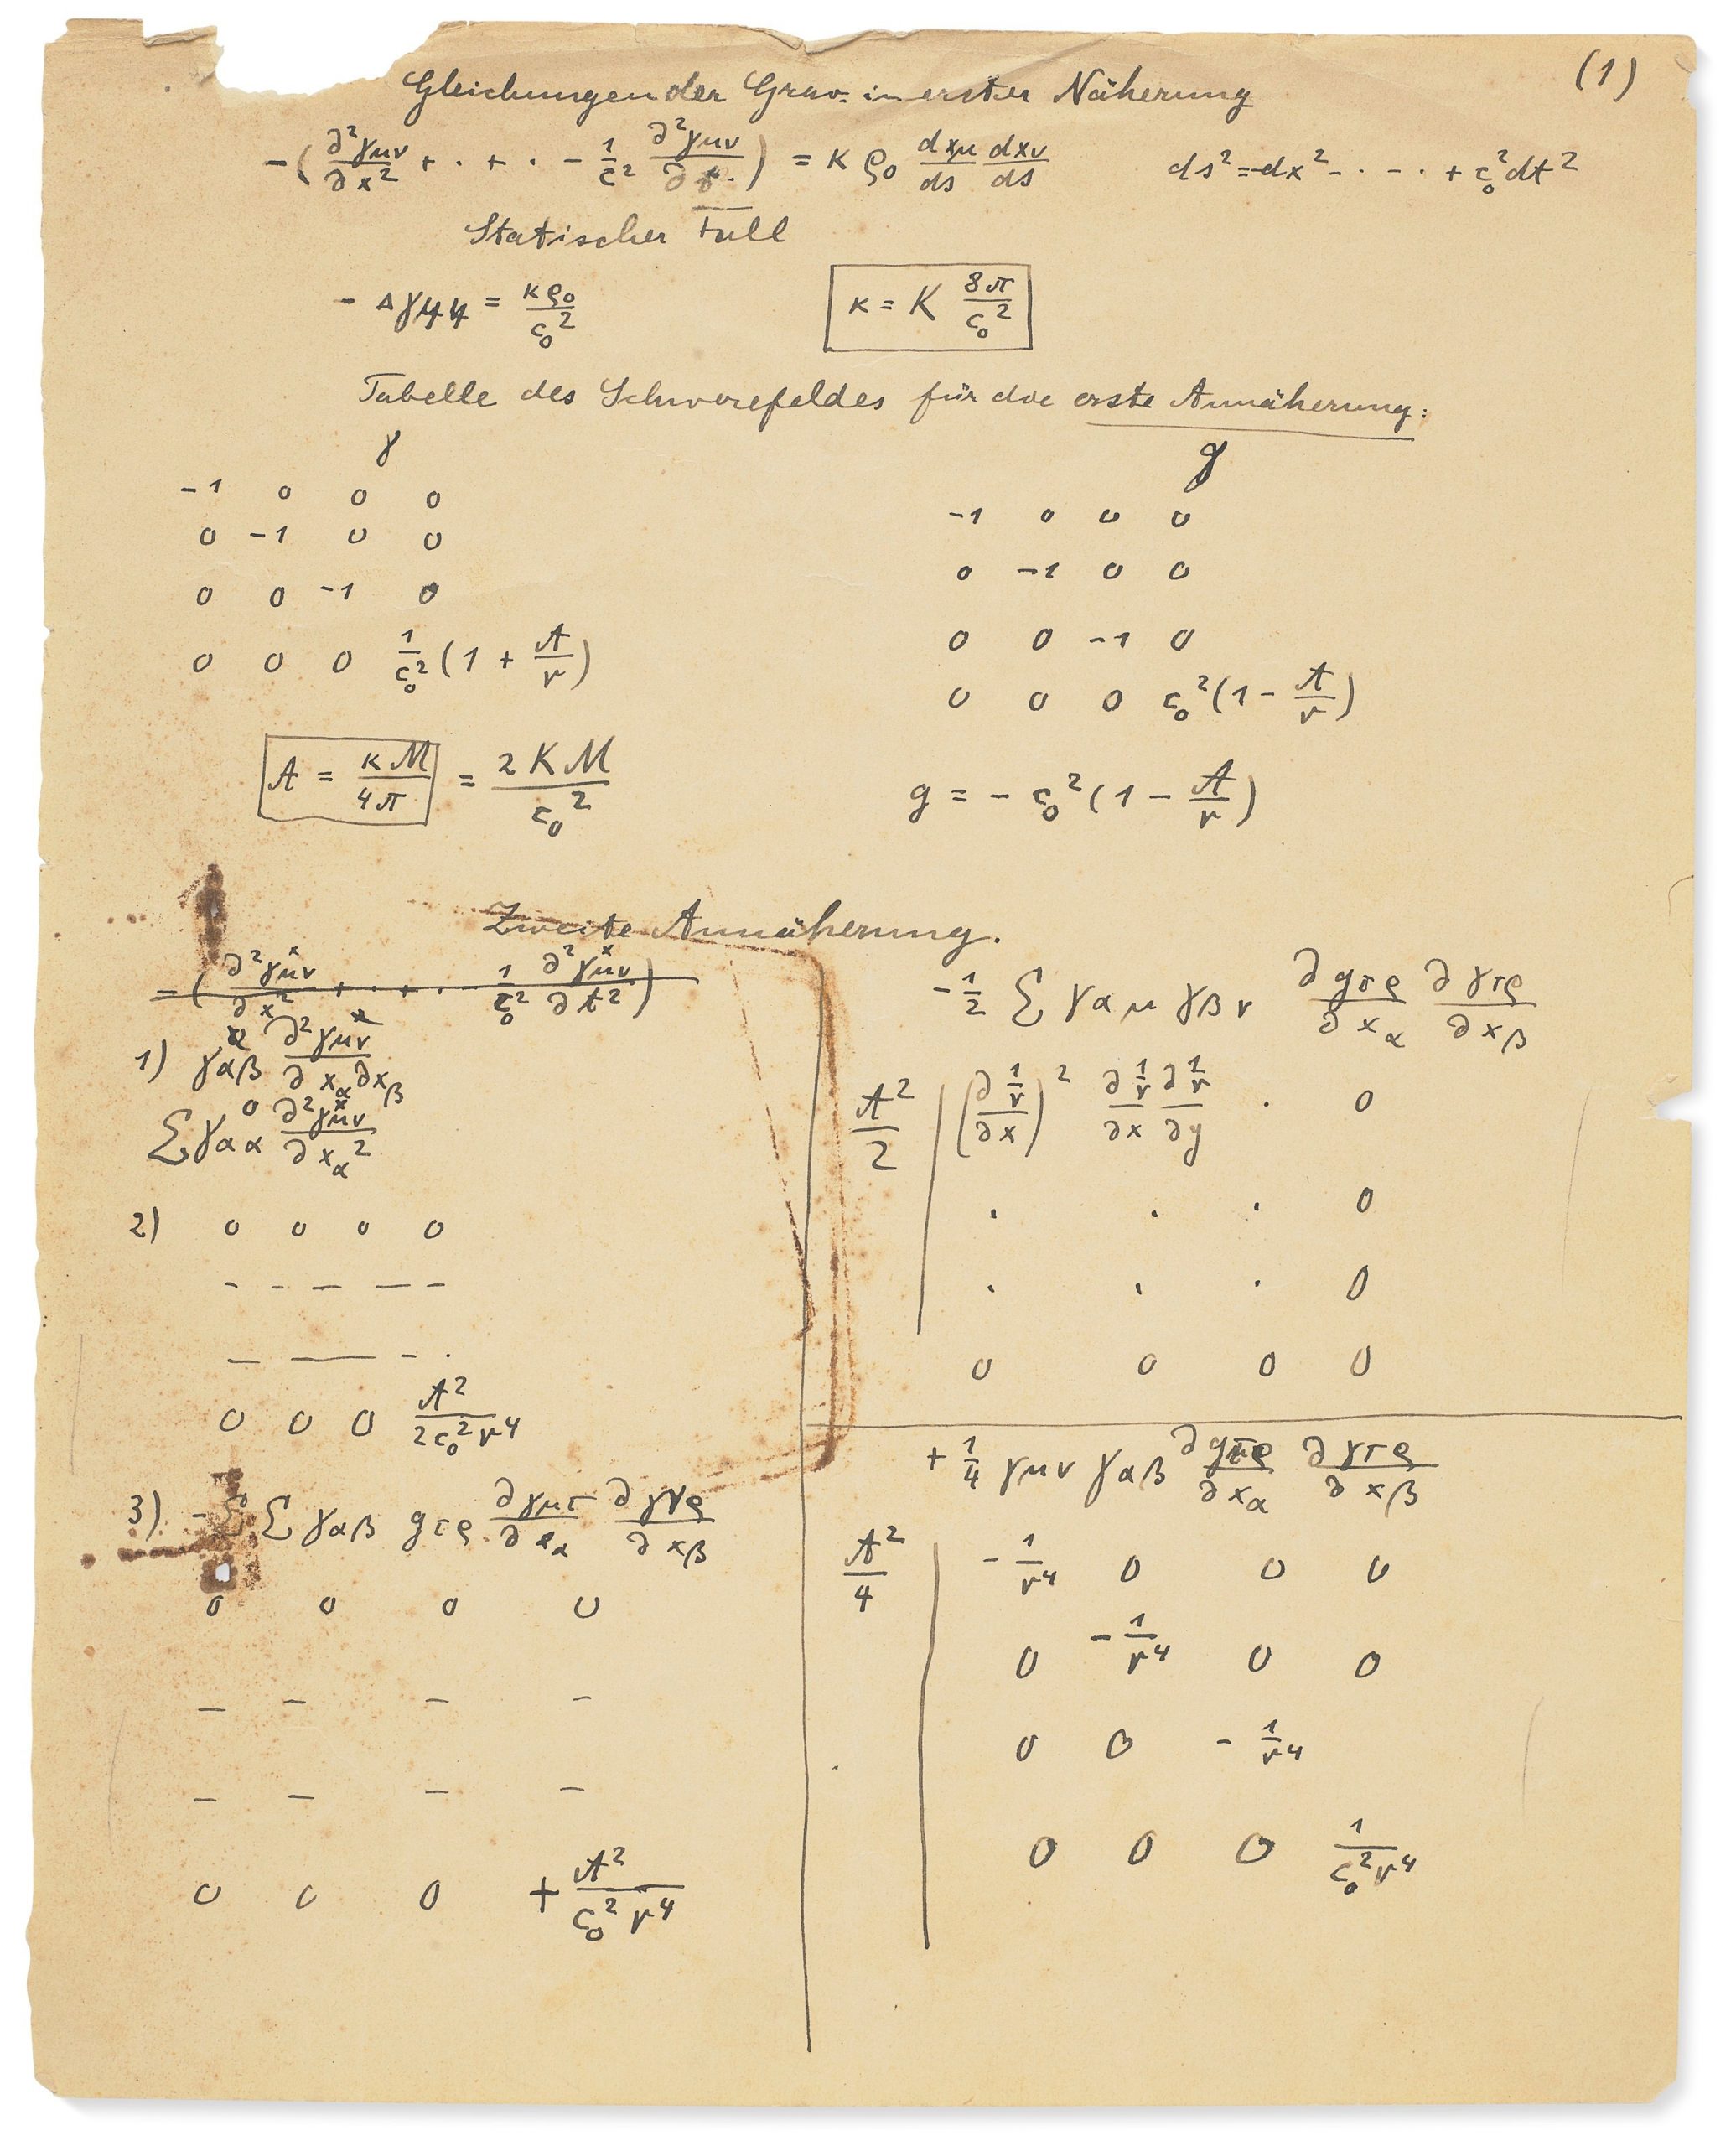 (1)
Gleichungen der Grav. in erster Näherung
-(∂²γμν/∂x² + · + · - 1/c² ∂²γμν/∂t·) = κ ρ₀ dxμ/ds dxν/ds   ds² = -dx² - · - · + c₀² dt²
Statischer Fall
- Δγ44 = κρ₀/c₀²   κ = K 8π/c₀²
Tabelle des Schwerefeldes für die erste Annäherung:
γ
-1 0 0 0
0 -1 0 0
0 0 -1 0
0 0 0 1/c₀² (1 + A/r)
A = κM/4π = 2KM/c₀²
g
-1 0 0 0
0 -1 0 0
0 0 -1 0
0 0 0 c₀² (1 - A/r)
g = - c₀² (1 - A/r)
Zweite Annäherung.
-(∂²γˣμν/∂x² + · + · - 1/c₀² ∂²γˣμν/∂t²)
1) γαβ ∂²γˣμν/∂xα∂xβ
Σ γ⁰αα ∂²γˣμν/∂xα²
2) 0 0 0 0
- - - - -
- - - ·
0 0 0 A²/2c₀²r⁴
3) - Σ γαβ gτρ ∂γμτ/∂xα ∂γνρ/∂xβ
0 0 0 0
- - - -
- - - -
0 0 0 + A²/c₀²r⁴
- 1/2 Σ γαμ γβν ∂gτρ/∂xα ∂γτρ/∂xβ
A²/2 | (∂ 1/r/∂x)² ∂ 1/r/∂x ∂ 1/r/∂y · 0
· · · 0
· · · 0
0 0 0 0
+ 1/4 γμν γαβ ∂gτρ/∂xα ∂γτρ/∂xβ
A²/4 | - 1/r⁴ 0 0 0
0 - 1/r⁴ 0 0
0 0 - 1/r⁴
0 0 0 1/c₀²r⁴